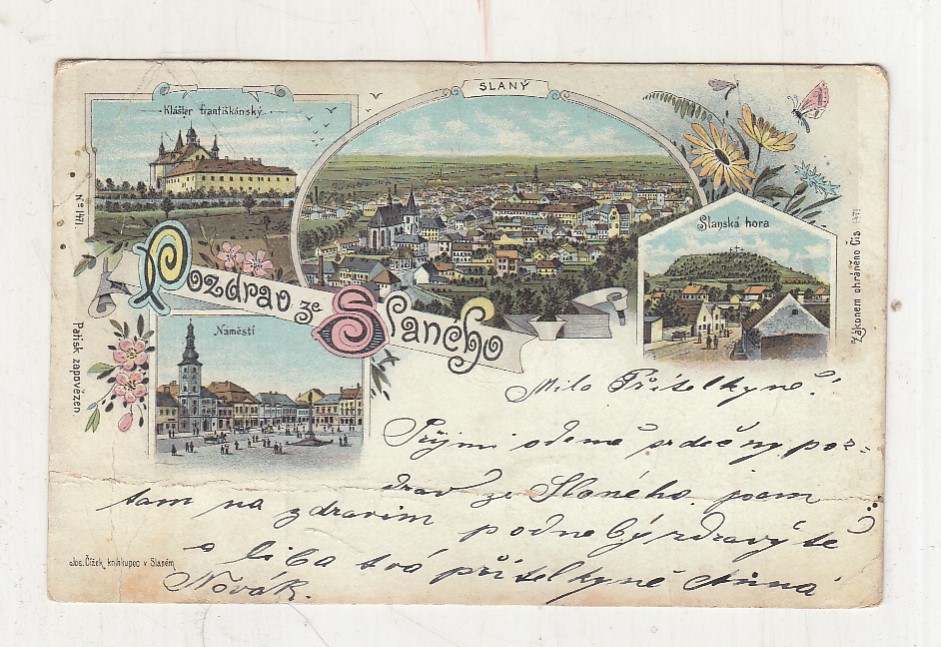 SLANÝ
Klášter františkánský
Slanská hora
Nº 1471.
Pozdrav ze Slaného
Náměstí
Patisk zapovězen.
Zákonem chráněno Čís 1471
Milá Přítelkyně!
Přijmi odemě srdečný poz-
drav ze Slaného. jsem
tam na zdravim podnebý zdravý tě
a liba tvá přítelkyně Anna
Novák.
Jos. Čížek, knihkupec v Slaném